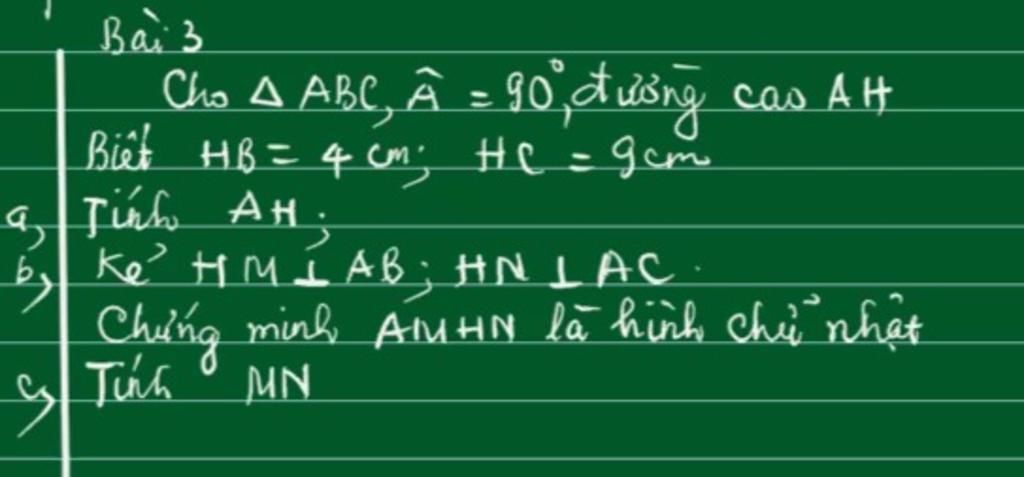 Bài 3
Cho Δ ABC, Â = 90°, đường cao AH
Biết HB = 4 cm; HC = 9 cm
a, Tính AH;
b, Kẻ HM ⊥ AB; HN ⊥ AC.
Chứng minh AMHN là hình chữ nhật
c, Tính MN